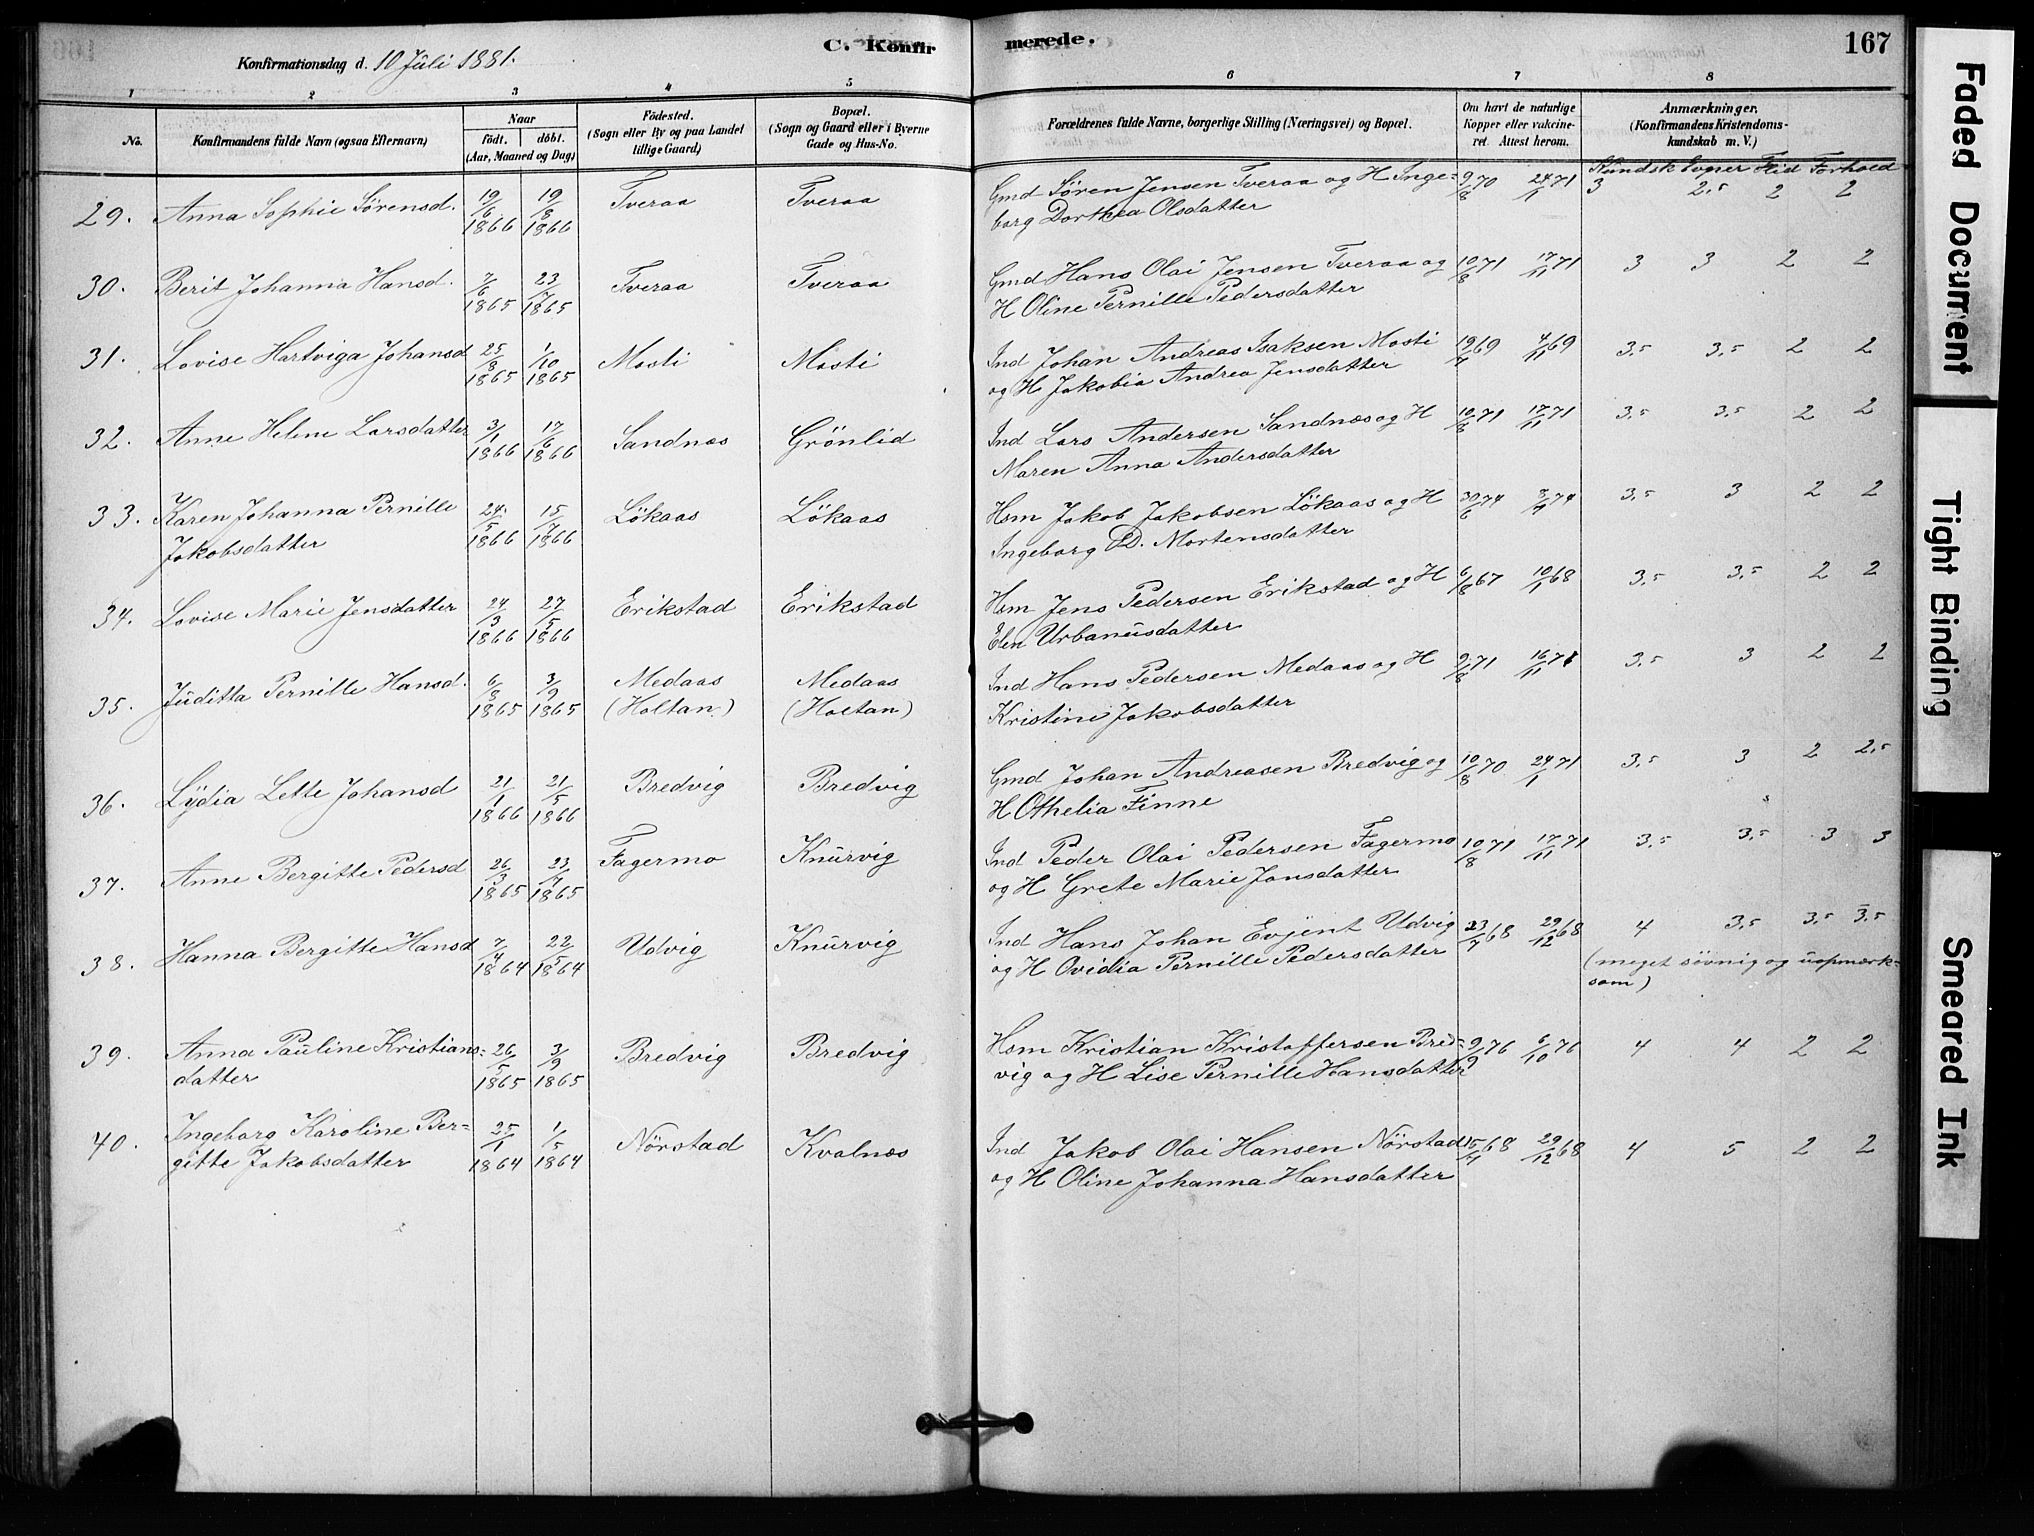 C. Konfir merede. 167
Konfirmationsdag d. 10 Juli 1881.
1 2 3 4 5 6 7 8
No. Konfirmandens fulde Navn (ogsaa Efternavn)
Naar
födt. döbt.
(Aar, Maaned og Dag)
Födested.
(Sogn eller By og paa Landet
tillige Gaard)
Bopæl.
(Sogn og Gaard eller i Byerne
Gade og Hus-No.
Forældrenes fulde Navne, borgerlige Stilling (Næringsvei) og Bopæl.
Om havt de naturlige
Kopper eller vakcine-
ret Attest herom.
Anmærkninger.
(Konfirmandens Kristendoms-
kundskab m. V.)
Kundsk Evner Flid Forhold
29. Anna Sophie Sörensd. 19/6 1866 19/8 1866 Tveraa Tveraa Gmd Sören Jensen Tveraa og H Inge- 9/8 70 24/1 71 3 2,5 2 2
borg Dorthea Olsdatter
30. Berit Johanna Hansd. 7/6 1865 23/7 1865 Tveraa Tveraa Gmd Hans Olai Jensen Tveraa og 10/8 71 17/11 71 3 3 2 2
H Oline Pernille Pedersdatter
31. Lovise Hartviga Johansd 25/8 1865 1/10 1865 Mosti Mosti Ind Johan Andreas Isaksen Mosti 19/7 69 4/11 69 3,5 3,5 2 2
og H Jakobia Andrea Jensdatter
32. Anne Helene Larsdatter 3/1 1866 17/6 1866 Sandnæs Grönlid Ind Lars Andersen Sandnæs og H 10/8 71 17/11 71 3,5 3,5 2 2
Maren Anna Andersdatter
33. Karen Johanna Pernille 24/5 1866 15/7 1866 Lökaas Lökaas Hsm Jakob Jakobsen Lökaas og H 30/6 74 74 3,5 3 2 2
Jakobsdatter Ingeborg D. Mortensdatter
34. Lovise Marie Jensdatter 24/3 1866 27/5 1866 Erikstad Erikstad Hsm Jens Pedersen Erikstad og H 6/8 67 10/1 68 3,5 3,5 2 2
Elen Urbanusdatter
35. Juditta Pernille Hansd. 6/8 1865 3/9 1865 Medaas Medaas Ind Hans Pedersen Medaas og H 9/8 71 16/11 71 3,5 3 2 2
(Holtan) (Holtan) Kristine Jakobsdatter
36. Lydia Lette Johansd 21/1 1866 21/5 1866 Bredvig Bredvig Gmd Johan Andreasen Bredvig og 10/8 70 24/1 71 3,5 3 2 2,5
H Othelia Finne
37. Anne Bergitte Pedersd 26/3 1865 23/4 1865 Fagermo Knurvig Ind Peder Olai Pedersen Fagermo 10/8 71 17/11 71 3,5 3,5 3 3
og H Grete Marie Jonsdatter
38. Hanna Bergitte Hansd 7/4 1864 22/5 1864 Udvig Knurvig Ind Hans Johan Evjent Udvig 23/7 68 29/12 68 4 3,5 3,5 3,5
og H Ovidia Pernille Pedersdatter (meget sövnig og uopmærk-
som)
39. Anna Pauline Kristians- 26/5 1865 3/9 1865 Bredvig Bredvig Hsm Kristian Kristoffersen Bred- 9/9 76 6/10 76 4 4 2 2
datter vig og H Lise Pernille Hansdatter
40. Ingeborg Karoline Ber- 25/1 1864 1/5 1864 Nörstad Kvalnæs Ind Jakob Olai Hansen Nörstad 15/7 68 29/12 68 4 5 2 2
gitte Jakobsdatter og H Oline Johanna Hansdatter
Faded Document
Tight Binding
Smeared Ink